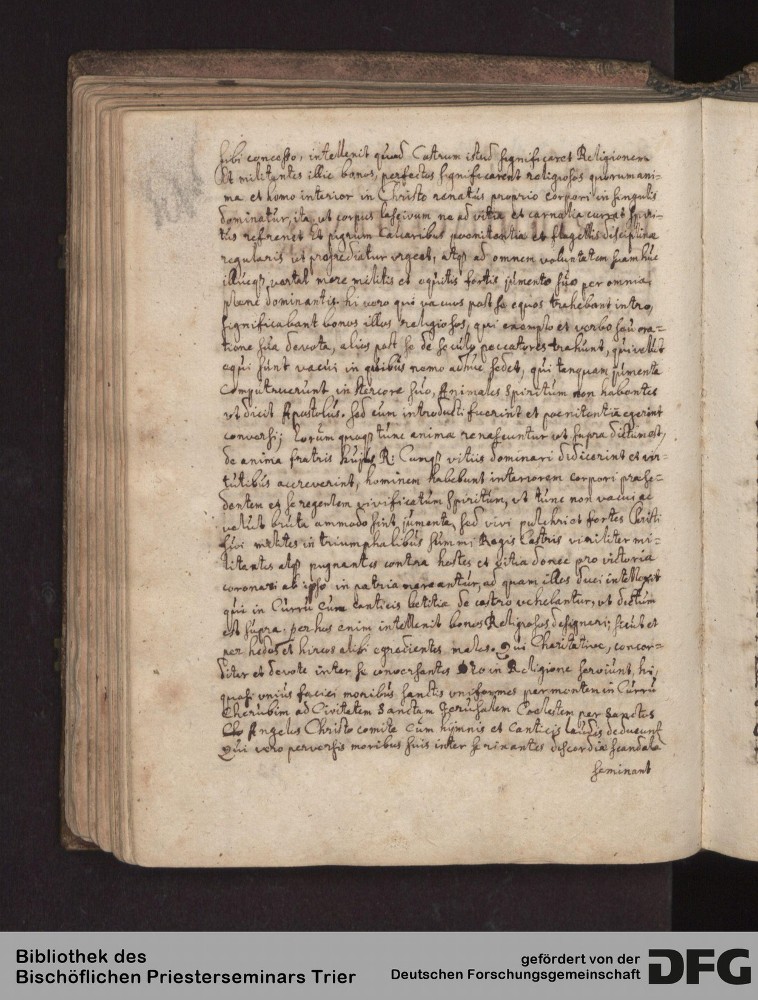 sibi concesso, intellexit quod Castrum istud significaret Religionem
Et militantes illic bonos, perfectos significarent religiosos quorum ani-
ma et homo interior in Christo renatus proprio corpori in singulis
dominatur, ita ut corpus lascivum ne ad vitia et carnalia currat spiri-
tus refrenet Et pigrum calcaribus poenitentiae et flagellis disciplinae
regularis ut progrediatur urgeat, atq3 ad omnem voluntatem suam huc
illucq3 vertat more militis et equitis fortis jumento suo per omnia
plene dominantis. hi vero qui vacuos post se equos trahebant intro,
significabant bonos illos religiosos, qui exemplo et verbo seu ora-
tione sua devota, alios post se de seculo peccatores trahunt, qui velut
equi sunt vacui in quibus nemo adhuc sedet, qui tanquam jumenta
Computruerunt in stercore suo, Animales Spiritum non habentes
ut dicit Apostolus. sed cum introducti fuerint et poenitentiam egerint
conversi; Eorum quoq3 tunc animae renascuntur ut supra dictum est,
de anima fratris hujus R: Cumq3 vitiis dominari didicerint et vir-
tutibus accreverint, hominem habebunt interiorem corpori praesi-
dentem et se regentem vivificatum Spiritum, ut tunc non vacui ac
velut bruta ammodo sint jumenta, sed vivi pulchri et fortes Christi
sui milites in triumphalibus summi Regis Castris viriliter mi-
litantes atq3 pugnantes contra hostes et vitia donec pro victoria
coronari ab ipso in patria mereantur, ad quam illos duci intellexit
qui in Curru cum canticis laetitiae de castro vehebantur, ut dictum
est supra, per hos enim intellexit bonos Religiosos designari; sicut et
per hedos et hircos alibi egredientes malos. Qui Charitative, concor-
diter et devote inter se conversantes Deo in Religione serviunt, hi,
quasi unius faciei moribus sanctis uniformes per montem in Curru
Cherubim ad Civitatem Sanctam Jerusalem Coelestem per Sanctos
Angelos Christo comite Cum hymnis et Canticis laudis deducunt
Qui vero perversis moribus suis inter se rixantes discordiae scandala
seminant
Bibliothek des
Bischöflichen Priesterseminars Trier
gefördert von der
Deutschen Forschungsgemeinschaft
DFG